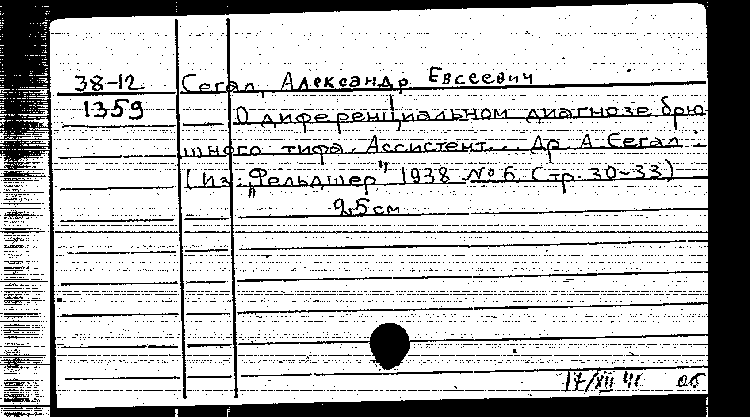 38-12 Сегал, Александр Евсеевич
1359 О диференциальном диагнозе брю
шного тифа. Ассистент... Др А. Сегал.
(Из: „Фельдшер" 1938 № 6 Стр. 30-33)
25 см
17/XII 41 об